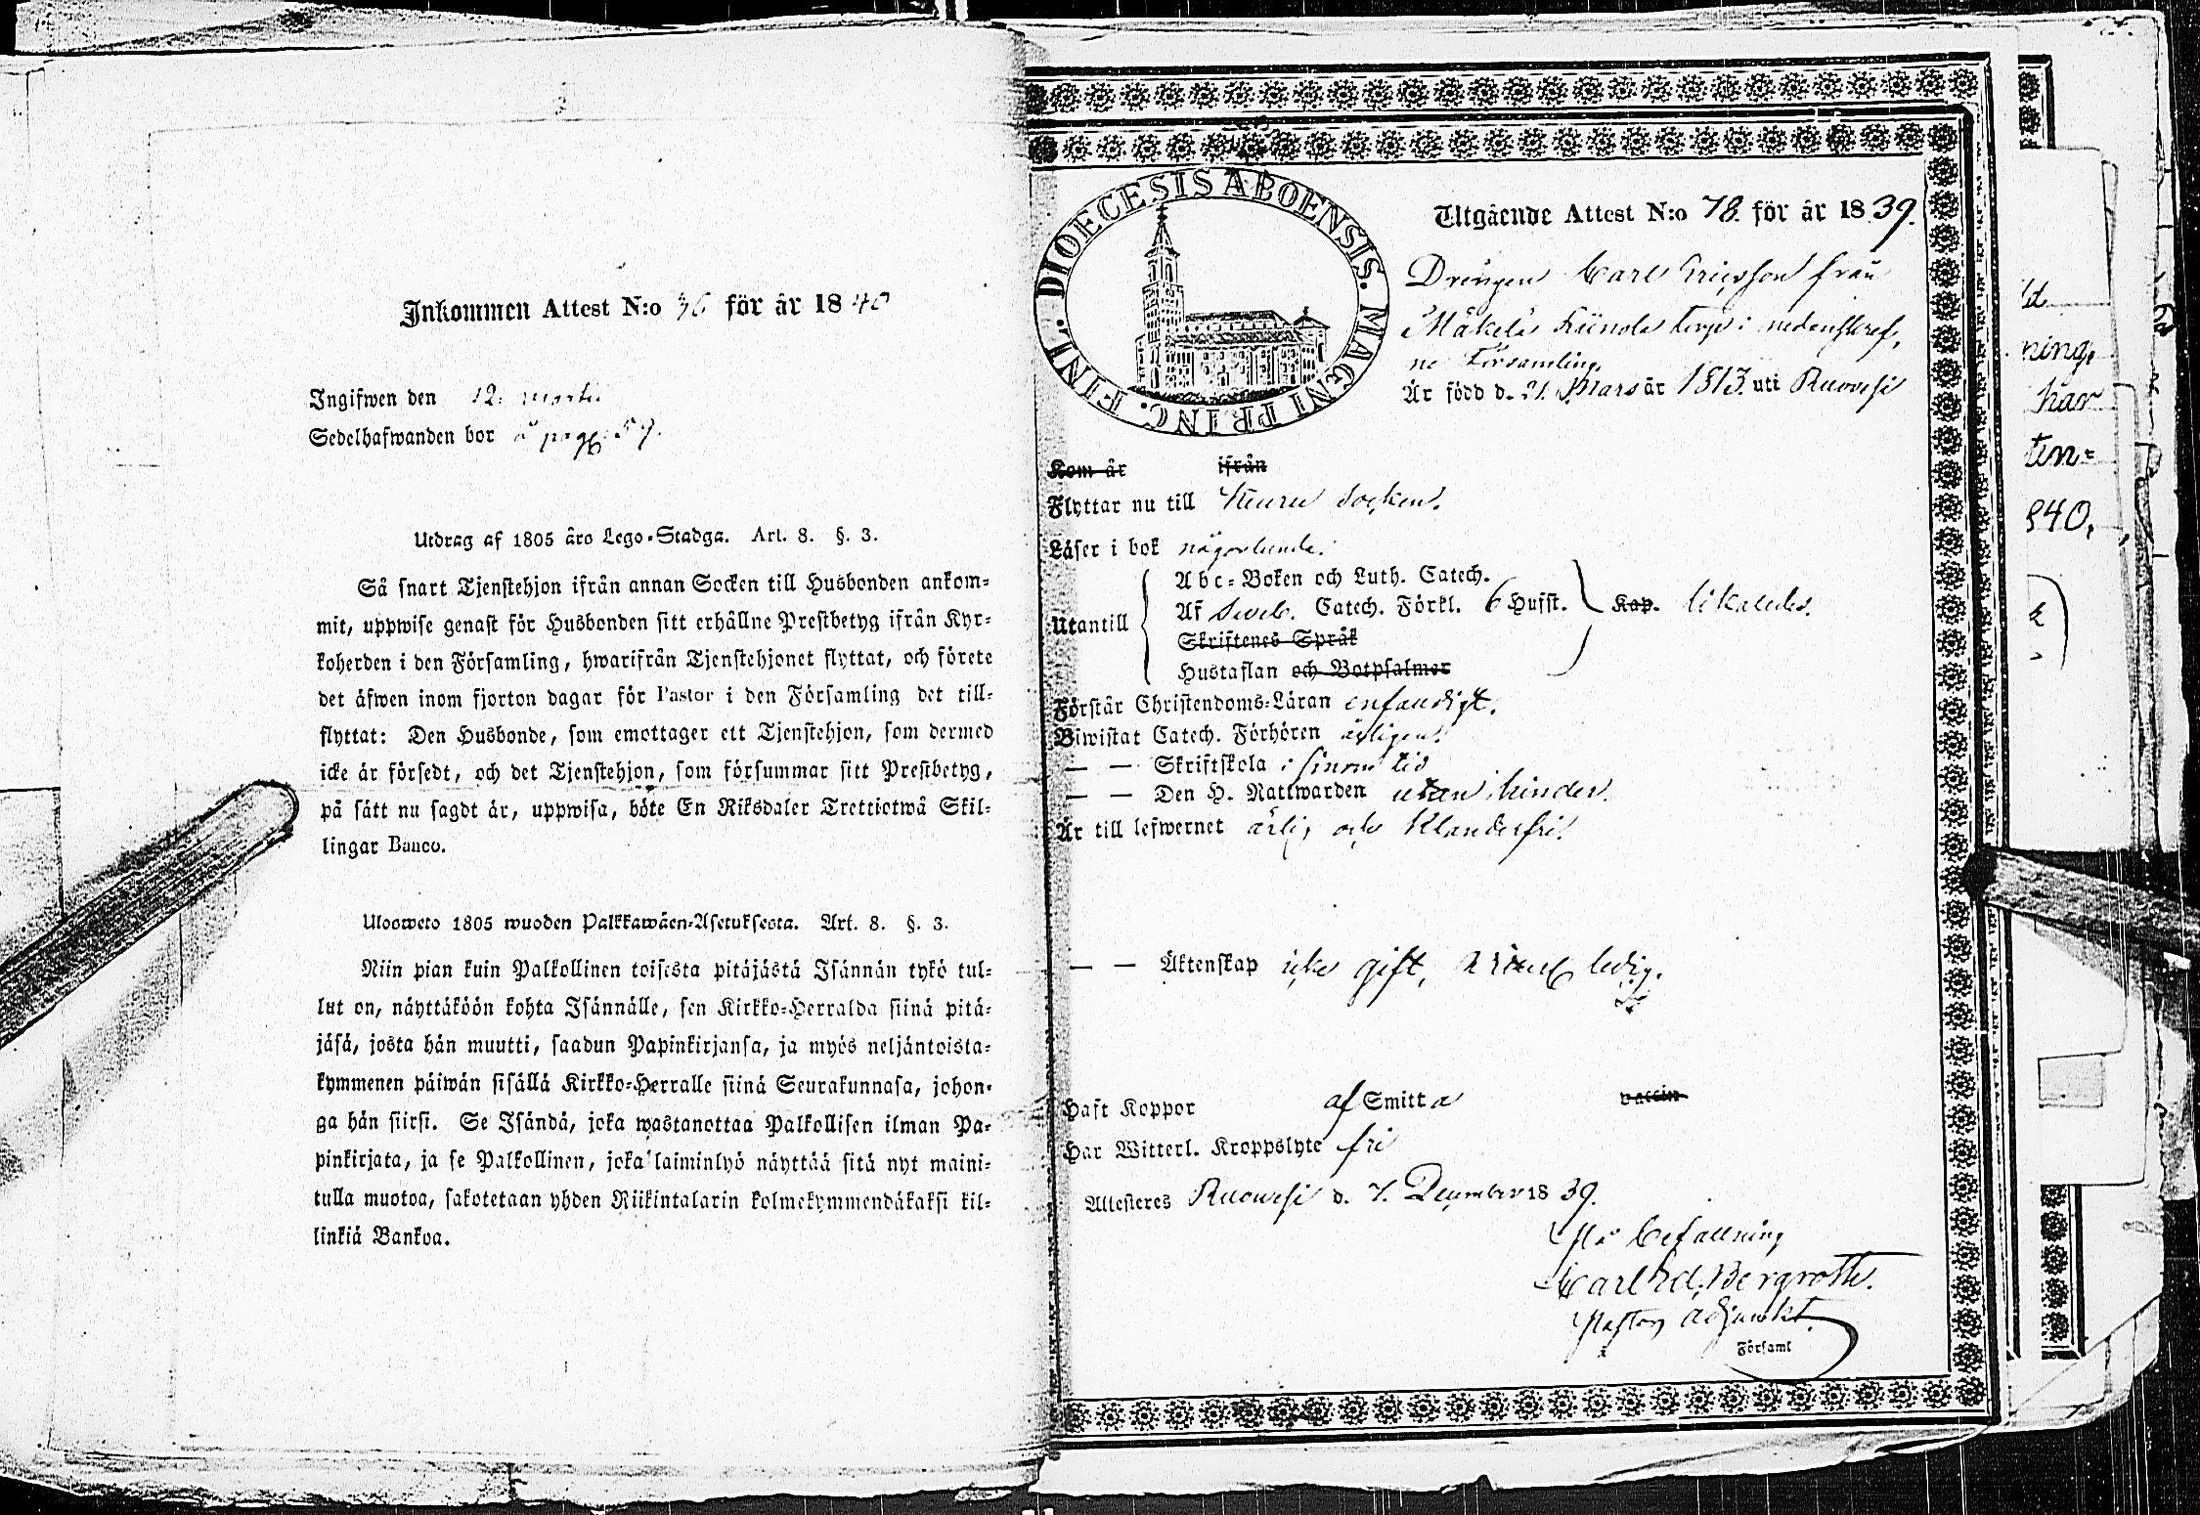 Inkommen Attest N:o 36 för år 1840
Ingifwen den 12. Martii
Sedelhafwanden bor å pag. 59.
Utdrag af 1805 års Lego-Stadga. Art. 8. §. 3.
Så snart Tjenstehjon ifrån annan Socken till Husbonden ankom-
mit, uppwise genast för Husbonden sitt erhållne Prestbetyg ifrån Kyr-
koherden i den Församling, hwarifrån Tjenstehjonet flyttat, och förete
det äfwen inom fjorton dagar för Pastor i den Församling det till-
flyttat: Den Husbonde, som emottager ett Tjenstehjon, som dermed
icke är försedt, och det Tjenstehjon, som försummar sitt Prestbetyg,
på sätt nu sagdt är, uppwisa, böte En Riksdaler Trettiotwå Skil-
lingar Banco.
Ulosweto 1805 wuoden Palkkawäen-Asetuksesta. Art. 8. §. 3.
Niin pian kuin Palkollinen toisesta pitäjästä Isännän tykö tul-
lut on, näyttäköön kohta Isännälle, sen Kirkko-Herralda siinä pitä-
jäsä, josta hän muutti, saadun Papinkirjansa, ja myös neljäntoista-
kymmenen päiwän sisällä Kirkko-Herralle siinä Seurakunnasa, johon-
ga hän siirsi. Se Isändä, joka wastanottaa Palkollisen ilman Pa-
pinkirjata, ja se Palkollinen, joka laiminlyö näyttää sitä nyt maini-
tulla muotoa, sakotetaan yhden Riikintalarin kolmekymmendäkaksi kil-
linkiä Bankoa.
DIOECESIS ABOENSIS. MAGNI PRINC. FINL.
Utgående Attest N:o 78. för år 1839.
Drengen Carl Ericsson från
Mäkelä torp i nedanskref,
ne Församling.
Är född d. 21. Mars år 1813. uti Ruovesi
Kom år ifrån
Flyttar nu till Kuru socken.
Läser i bok någorlunda.
Utantill
Abc-Boken och Luth. Catech.
Af Sweb. Catech. Förkl. 6 Hufst. Kap. likaledes.
Skriftenes Språk
Hustaflan och Botpsalmer
Förstår Christendoms-Läran enfaldigt.
Biwistat Catech. Förhören årligen.
— — Skriftskola i sinom tid
— — Den H. Nattwarden utan hinder.
Är till lefwernet ärlig och klanderfri.
— — Äktenskap icke gift, utan ledig.
Haft Koppor af Smitta vaccin
Har Witterl. Kroppslyte fri
Attesteres Ruovesi d. 7. December 1839.
På befallning
Carl Ad. Bergroth.
Pastors Adjunkt.
Församl
ning,
har
840,